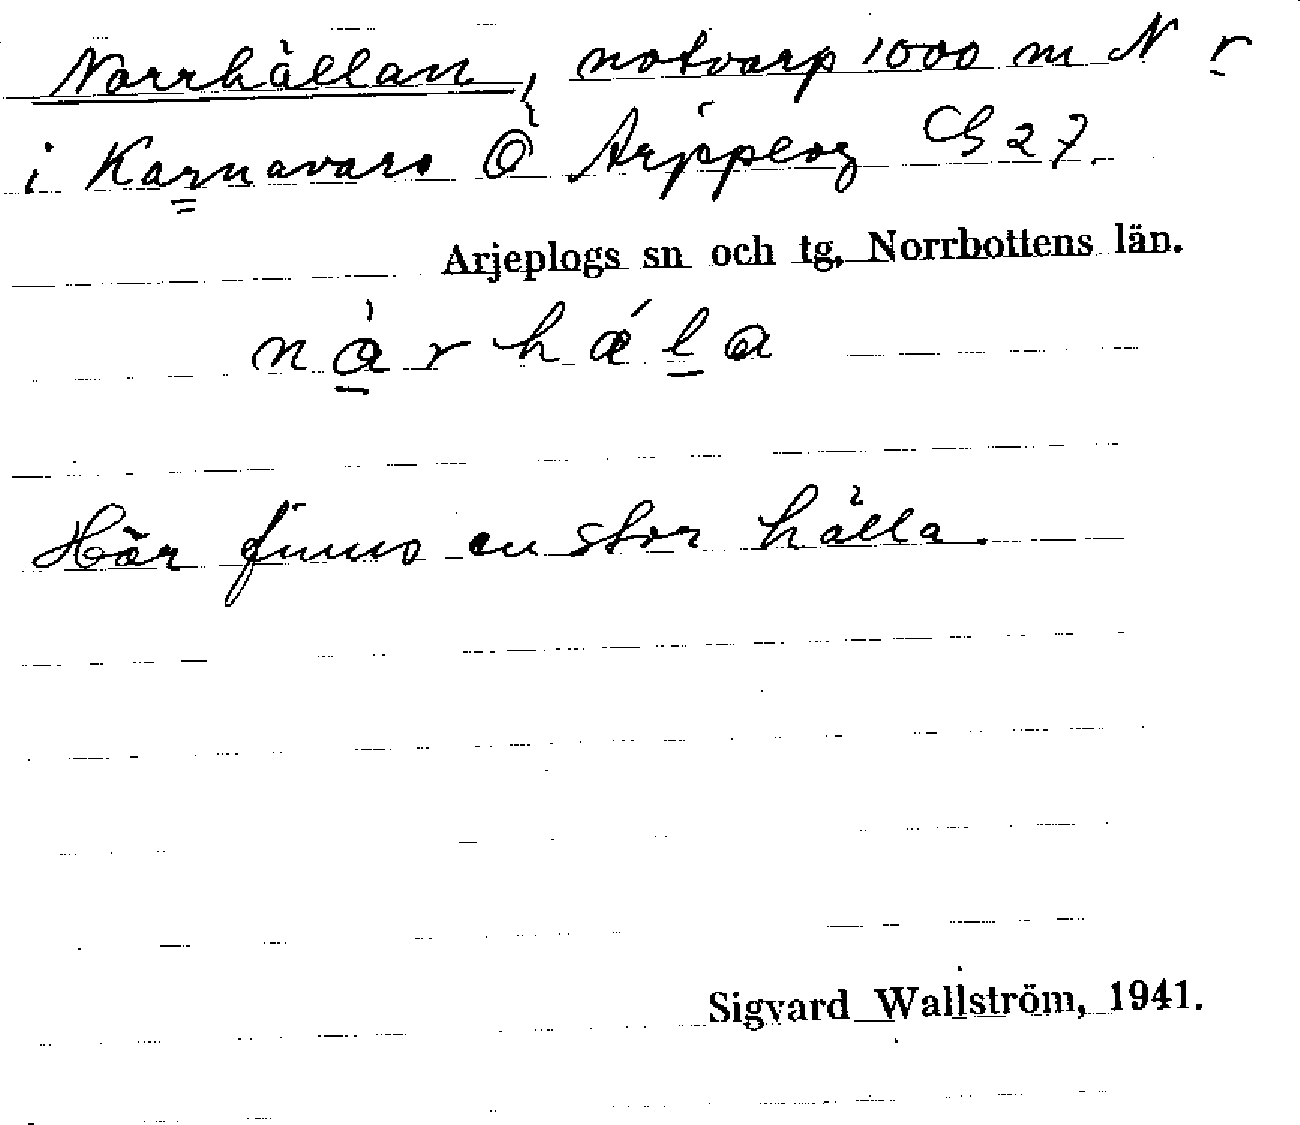 Norrhällan, notvarp 1000 m N r
i Karnavare Ö Arjeplog G 27.
Arjeplogs sn och tg, Norrbottens län.
nàrhǽla
Här finns en stor hälla.
Sigvard Wallström, 1941.